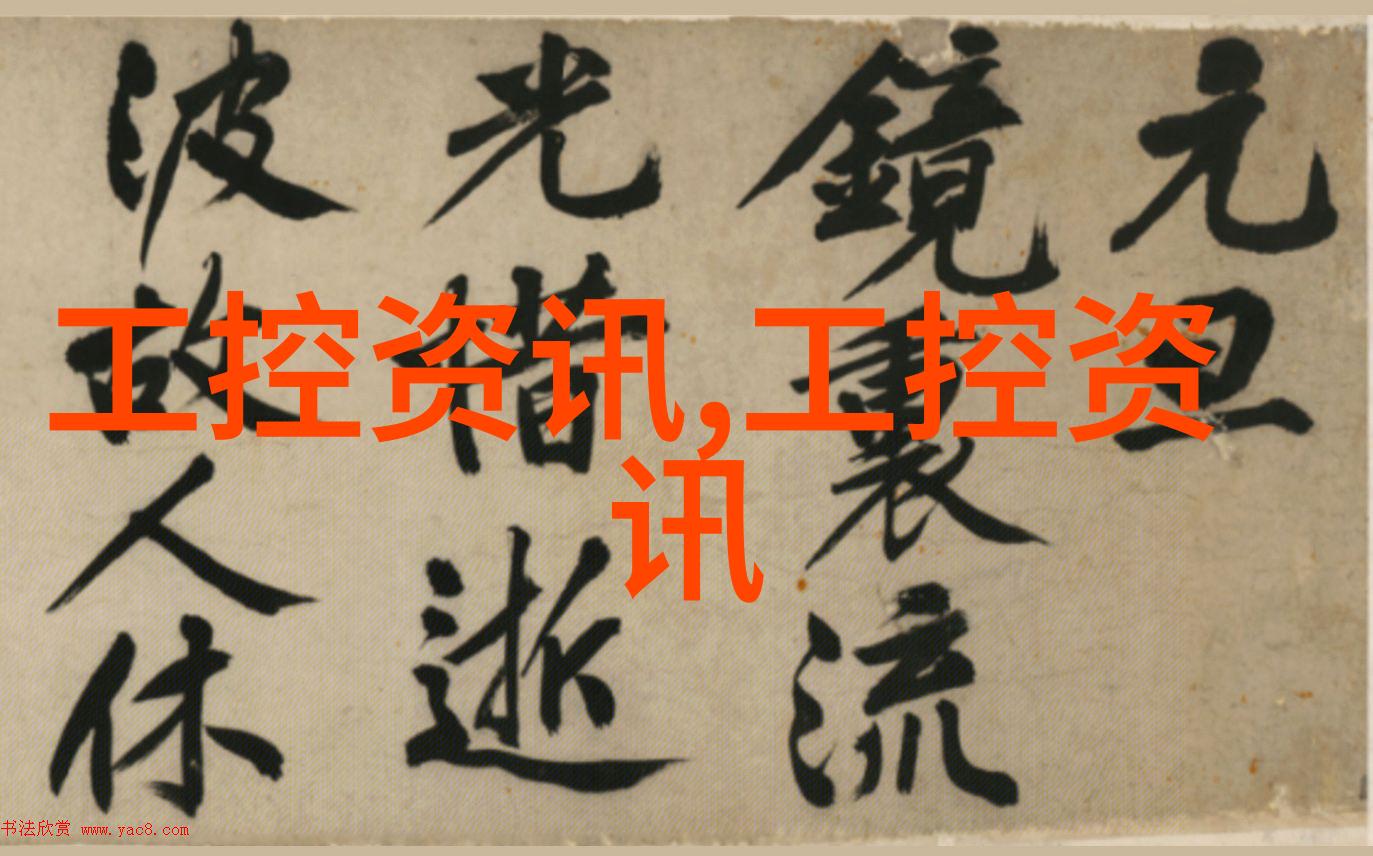 元旦
鏡裏流
光惜逝
波故人休
工控资讯,工控资
讯
书法欣赏 www.yac8.com